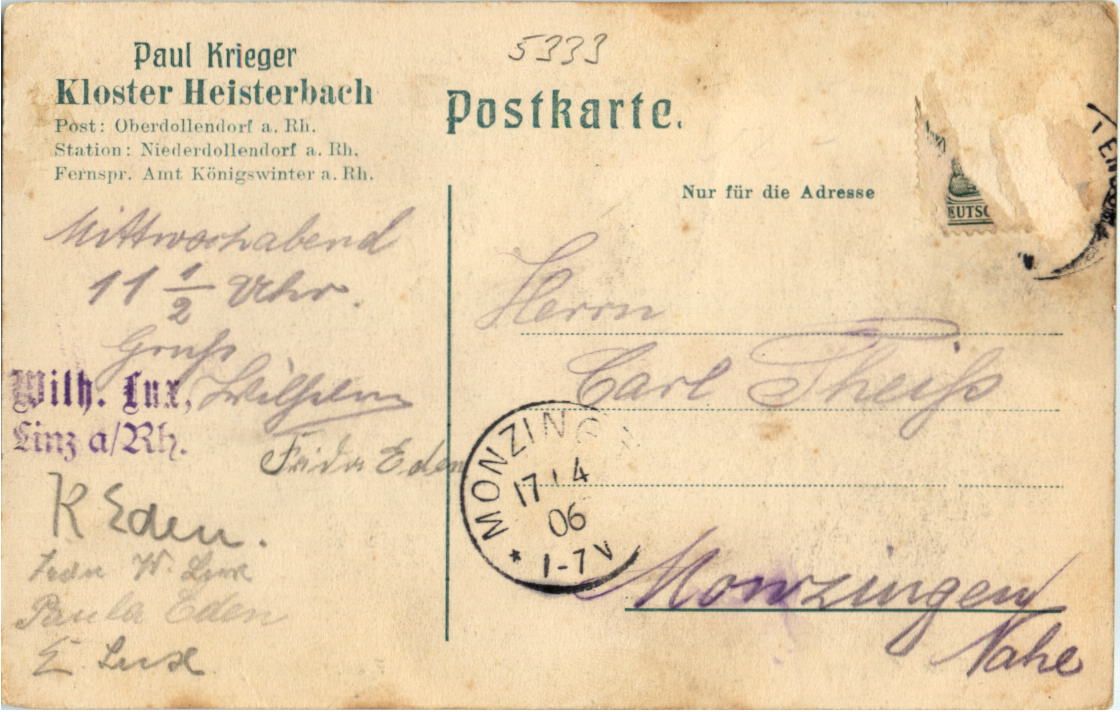 5333
Paul Krieger
Kloster Heisterbach
Post: Oberdollendorf a. Rh.
Station: Niederdollendorf a. Rh.
Fernspr. Amt Königswinter a. Rh.
Postkarte.
Nur für die Adresse
EUTSC
Mittwochabend
11 1/2 Uhr.
Gruß
Wilhelm
Wilh. Lux,
Linz a/Rh.
Frida Eden
K Eden.
W. Lux
Paula Eden
E. Lux
Herrn
Carl Theiß
Monzingen
Nahe
MONZINGEN
17 4
06
1-7 V